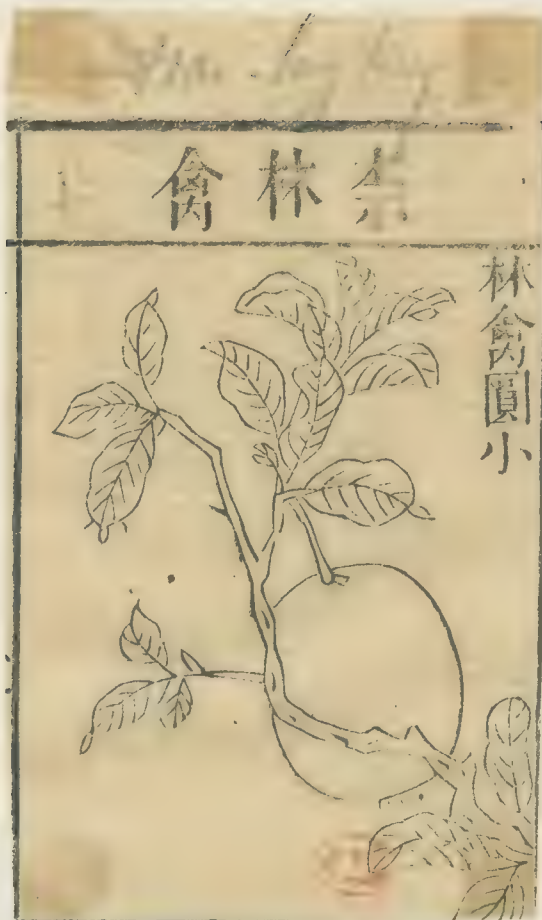 柰林禽
林禽圓小